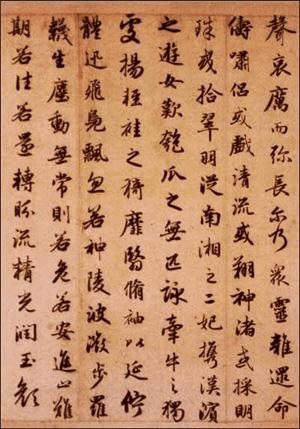 聲哀厲而弥長尔乃衆靈雜遝命
儔嘯侶或戲清流或翔神渚或採明
珠或拾翠羽從南湘之二妃攜漢濱
之遊女歎匏瓜之無匹詠牽牛之獨
處揚輕袿之猗靡翳脩袖以延佇
體迅飛鳧飄忽若神陵波微步羅
韈生塵動無常則若危若安進止難
期若往若還轉眄流精光潤玉顔